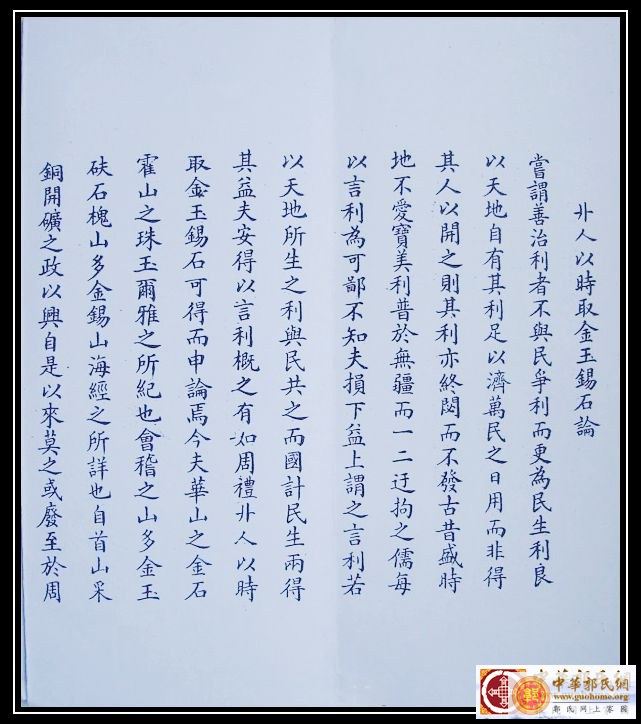 丱人以時取金玉錫石論
嘗謂善治利者不與民爭利而更為民生利良
以天地自有其利足以濟萬民之日用而非得
其人以開之則其利亦終閟而不發古昔盛時
地不愛寶美利普於無疆而一二迂拘之儒每
以言利為可鄙不知夫損下益上謂之言利若
以天地所生之利與民共之而國計民生兩得
其益夫安得以言利概之有如周禮丱人以時
取金玉錫石可得而申論焉今夫華山之金石
霍山之珠玉爾雅之所紀也會稽之山多金玉
砆石槐山多金錫山海經之所詳也自首山采
銅開礦之政以興自是以來莫之或廢至於周
中華郭氏網
www.guohome.org
郭氏網上家園